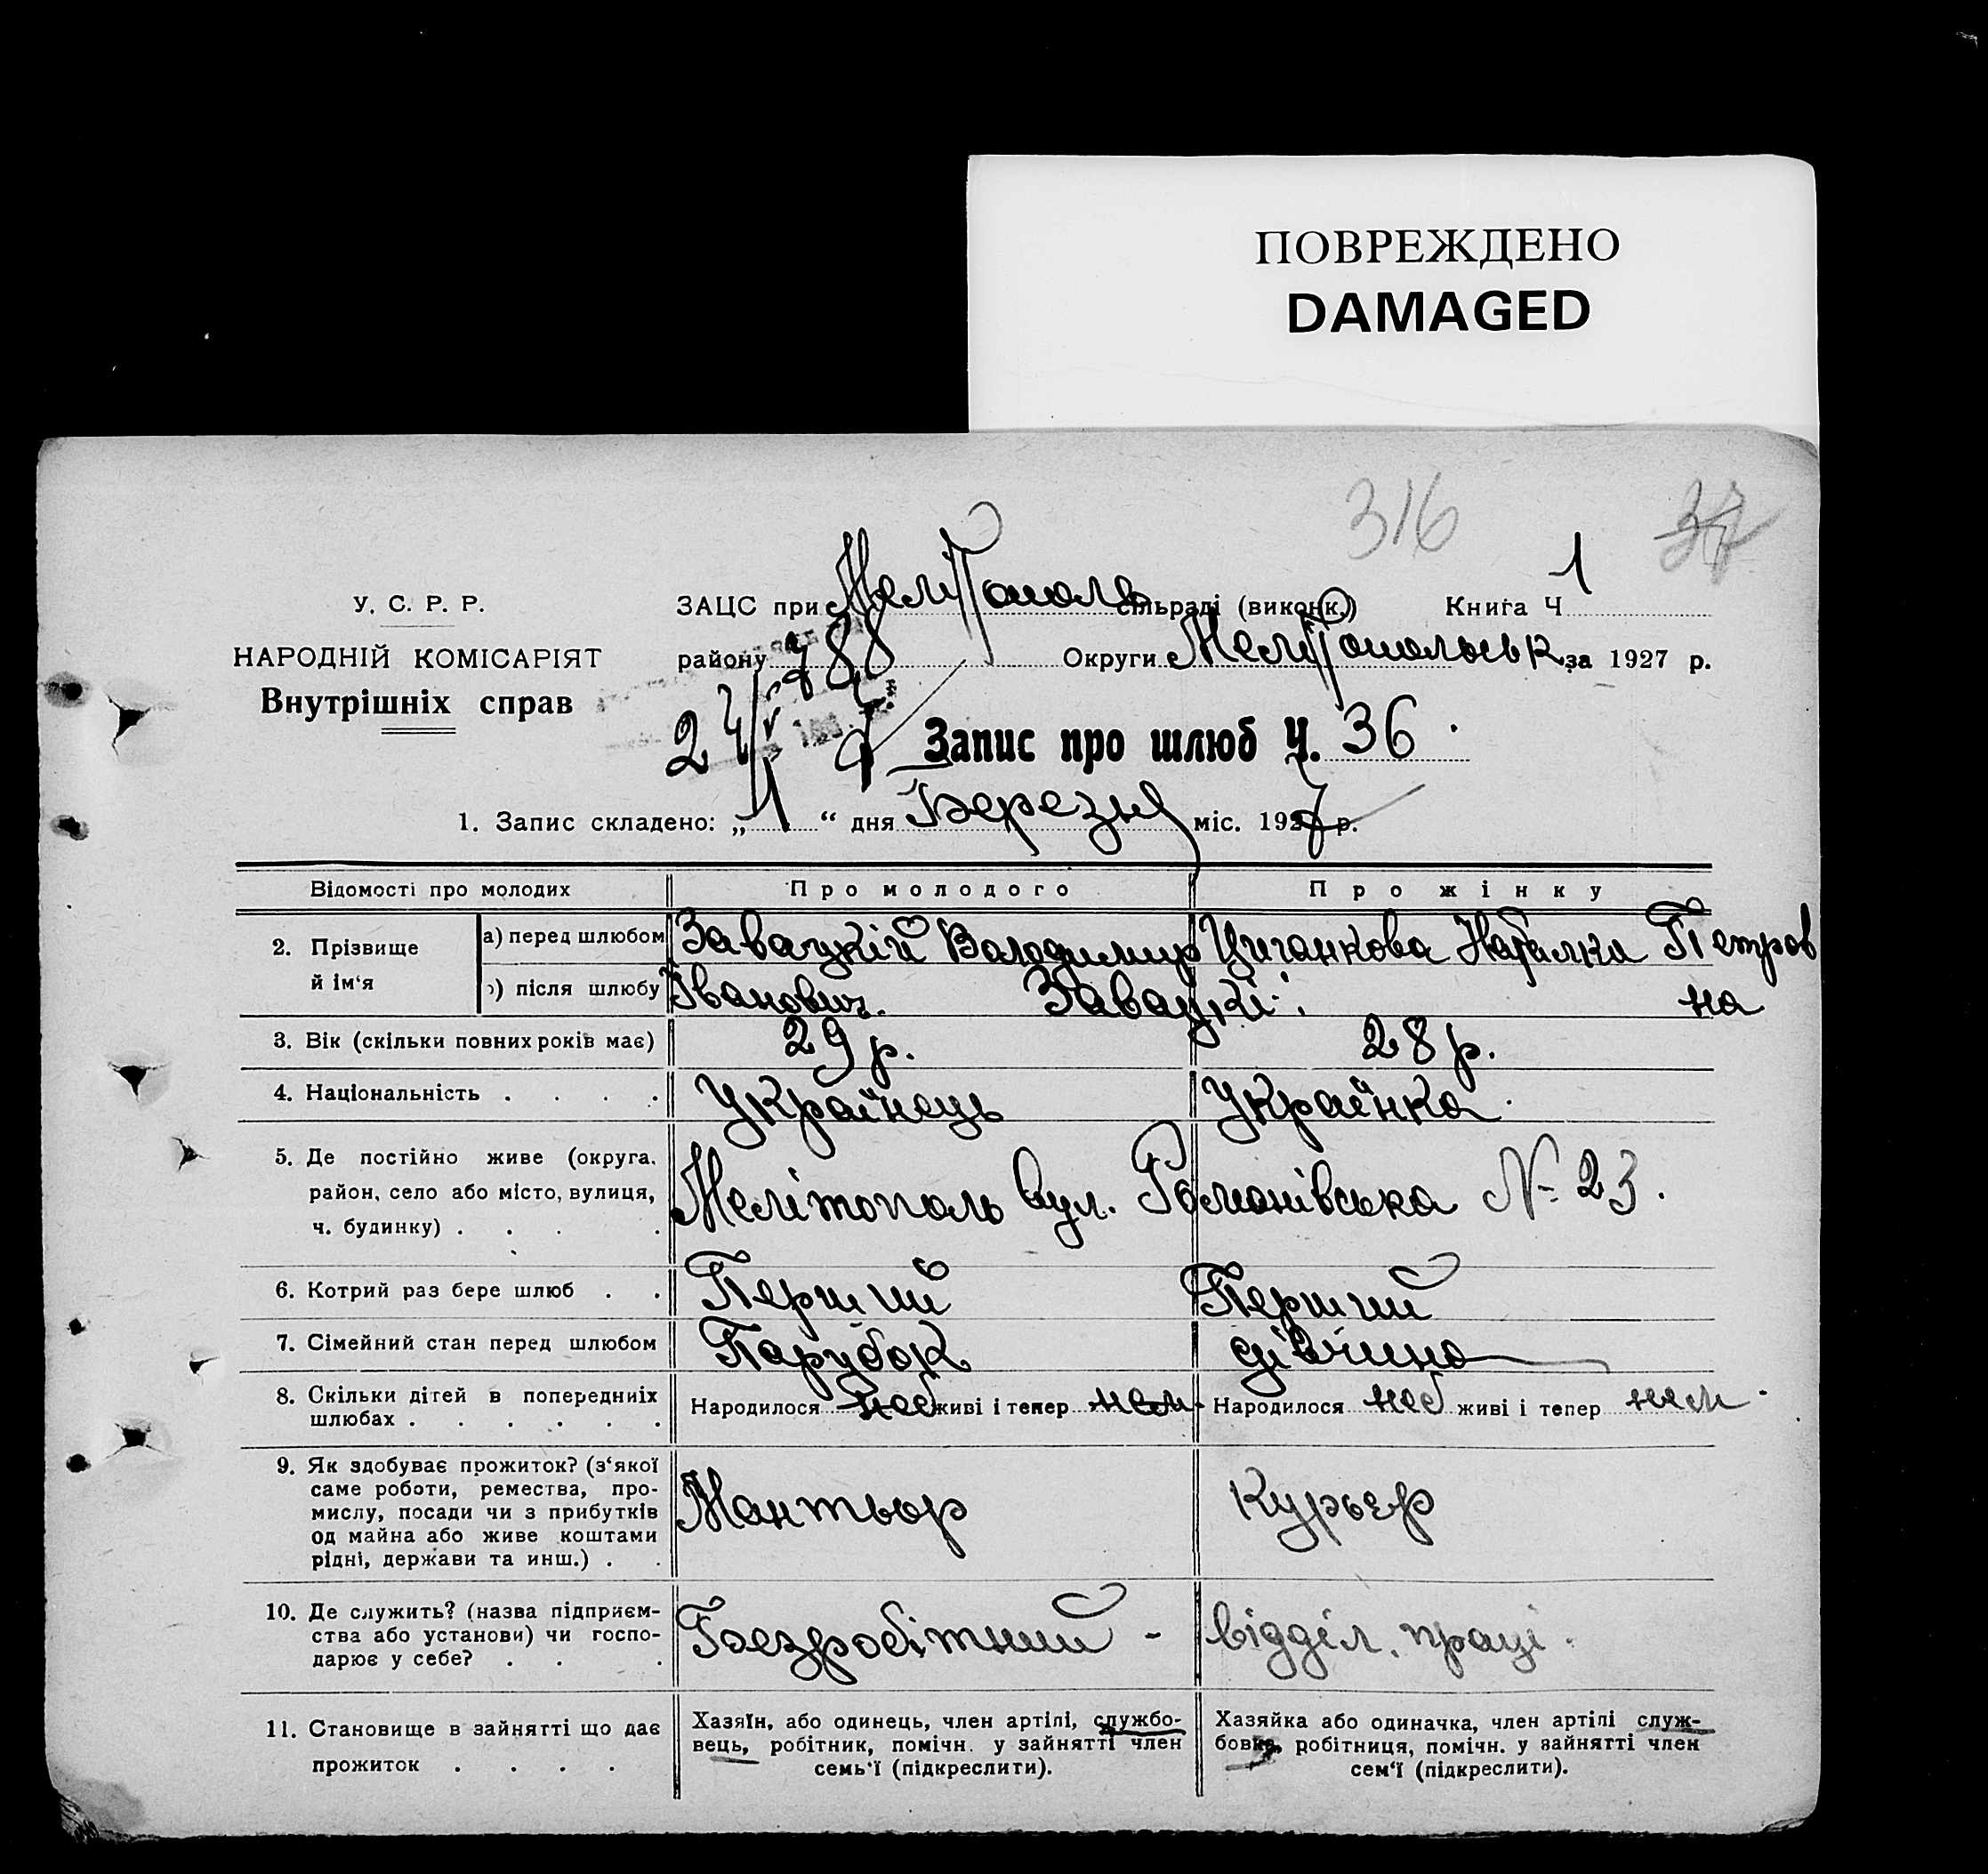 ПОВРЕЖДЕНО
DAMAGED
316 37
У. С. Р. Р.
НАРОДНІЙ КОМІСАРІЯТ
Внутрішніх справ
ЗАЦС при Мелітополь сільраді (виконк.) Книга Ч 1
району Округи Мелітопольськ за 1927 р.
Запис про шлюб Ч. 36
1. Запис складено: „ 1 “ дня Березня міс. 1927 р.
Відомості про молодих Про молодого Про жінку
2. Прізвище й ім‘я
а) перед шлюбом Завацкій Володимир Циганкова Наталка Петров
б) після шлюбу Іванович. Завацкі на
3. Вік (скільки повних років має) 29 р. 28 р.
4. Національність . . . . Українець Українка
5. Де постійно живе (округа,
район, село або місто, вулиця, Мелітополь вул. Романівська № 23.
ч. будинку) . . . .
6. Котрий раз бере шлюб . . Перший Перший
7. Сімейний стан перед шлюбом Парубок дівчина
8. Скільки дітей в попередниіх Народилося живі і тепер нем Народилося живі і тепер нем
шлюбах . . . . . .
9. Як здобуває прожиток? (з‘якої
саме роботи, ремества, про-
мислу, посади чи з прибутків Мантьор Курьер
од майна або живе коштами
рідні, держави та инш.) . .
10. Де служить? (назва підприєм-
ства або установи) чи госпо- Безробітний - відділ. праці.
дарює у себе? . . .
11. Становище в зайнятті що дає
прожиток . . . .
Хазяїн, або одинець, член артілі, службо-
вець, робітник, помічн. у зайнятті член
семь‘ї (підкреслити).
Хазяйка або одиначка, член артілі служ-
бовка, робітниця, помічн. у зайнятті член
сем‘ї (підкреслити).